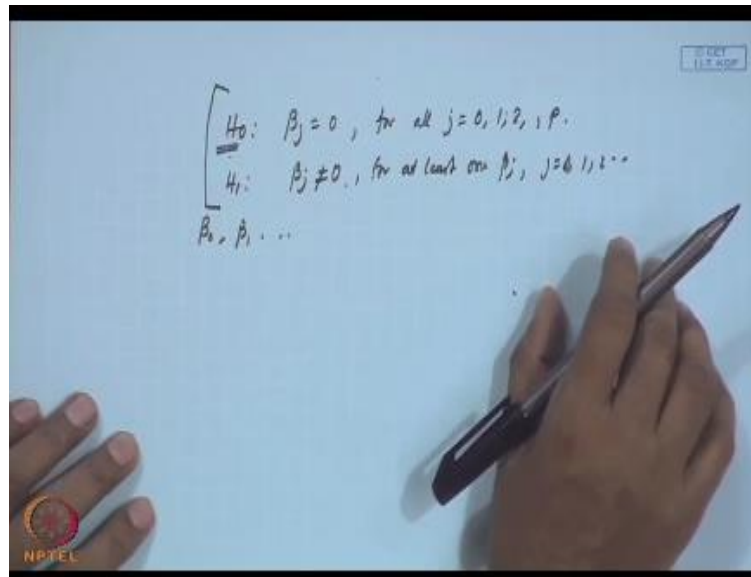 © CET
I.I.T. KGP
H0: βj = 0, for all j = 0, 1, 2, , p.
H1: βj ≠ 0, for at least one βj, j = 1, 2 ..
β0, β1 ...
NPTEL